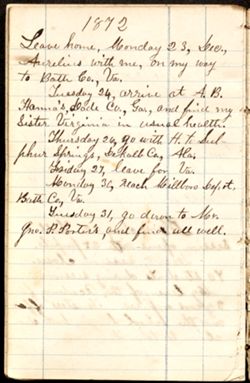 1872
Leave home, Monday 23, Dec,
Aurelius with me, on my way
to Bath Co, Va.
Tuesday 24, arrive at A. B.
Hanna's, Dade Co, Geo, and find my
Sister Virginia in usual health.
Thursday 26, go with H. to Sul-
phur Springs, DeKalb Co, Ala.
Friday 27, leave for Va.
Monday 30, reach Millboro Depot.
Bath Co, Va.
Tuesday 31, go down to Mr.
Jno. P. Porter's, and find all well.